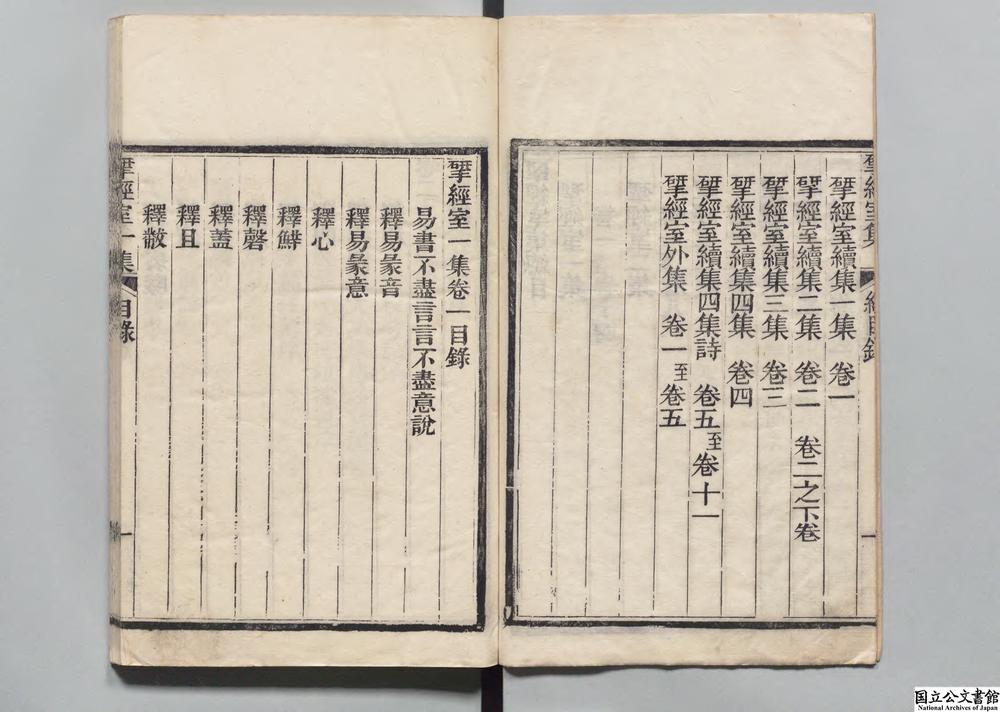 揅經室集 總目錄 一
揅經室續集一集 卷一
揅經室續集二集 卷二 卷二之下卷
揅經室續集三集 卷三
揅經室續集四集 卷四
揅經室續集四集詩 卷五至卷十一
揅經室外集 卷一至卷五
揅經室一集卷一目錄
易書不盡言言不盡意說
釋易彖音
釋易彖意
釋心
釋鮮
釋磬
釋蓋
釋且
釋黻
揅經室一集 目錄 一
国立公文書館
National Archives of Japan